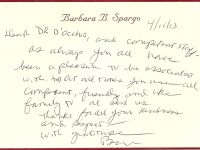 Barbara B. Spargo
4/10/13
Dear DR D'Occhio, and competent staff,
as always you all have
been a pleasure to be associated
with. At all times you are all
competent, friendly and like
family to all and us
Thanks for all your kindness
and support
with gratitude